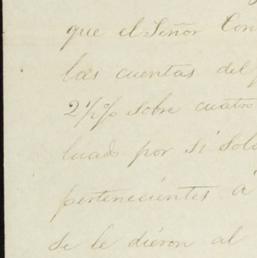 que el Señor Con
las cuentas del
2½% sobre cuatro
luado por sí solo
pertenecientes á
se le dieron al